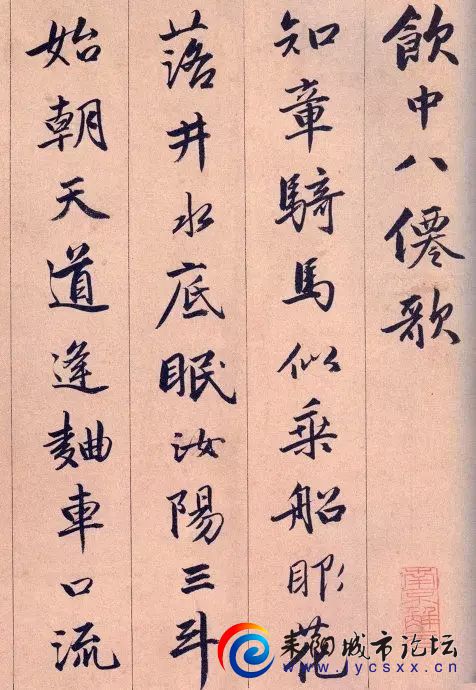 飲中八僊歌
知章騎馬似乘船眼花
落井水底眠汝陽三斗
始朝天道逢麯車口流
耒阳城市论坛
www.lycsxx.cn